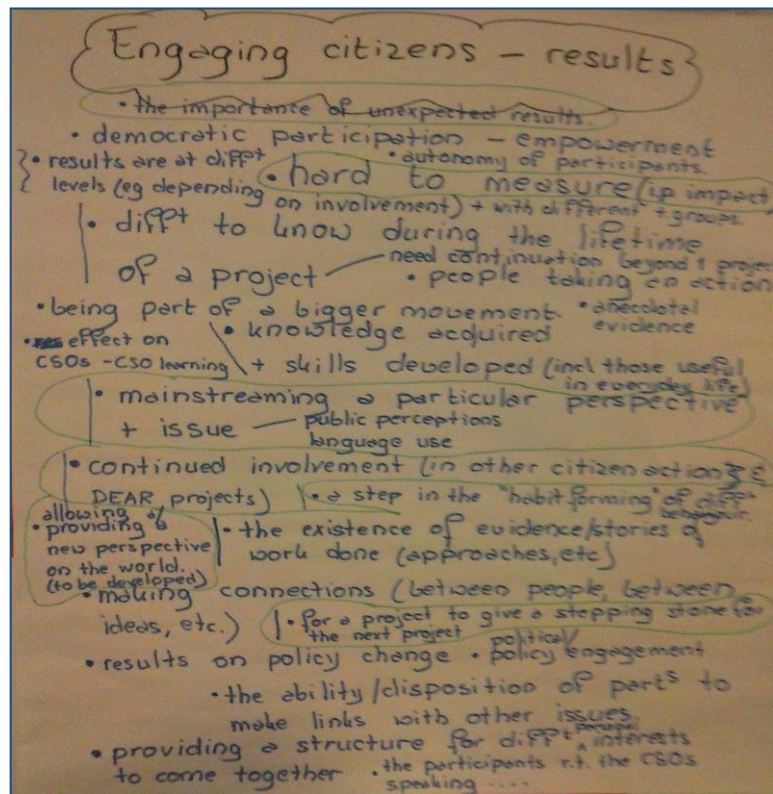 Engaging citizens – results
• the importance of unexpected results.
• democratic participation – empowerment
• autonomy of participants.
• results are at diffpt
levels (eg depending
on involvement)
• hard to measure (ip impact)
+ with different t. groups.
• diffpt to know during the lifetime
of a project — need continuation beyond 1 project
• people taking an action
• being part of a bigger movement.
• anecdotal
evidence
• effect on
CSOs - CSO learning
• knowledge acquired
+ skills developed (incl those useful
in everyday life)
• mainstreaming a particular perspective
+ issue — public perceptions
language use
• continued involvement (in other citizen actions &
DEAR projects)
• a step in the "habit forming" of diffpt
behaviour.
allowing a/
• providing a
new perspective
on the world.
(to be developed)
• the existence of evidence/stories of
work done (approaches, etc)
• making connections (between people, between
ideas, etc.)
• for a project to give a stepping stone for
the next project
• results on policy change
• political/
policy engagement
• the ability/disposition of parts to
make links with other issues.
• providing a structure for diffpt interests
to come together
• the participants r.t. the CSOs
speaking ....